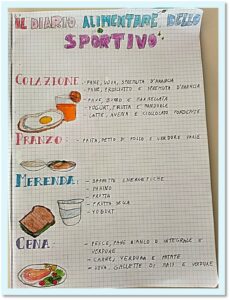 IL DIARIO ALIMENTARE DELLO
SPORTIVO
COLAZIONE: - PANE, UOVA, SPREMUTA D'ARANCIA
- PANE, PROSCIUTTO E SPREMUTA D'ARANCIA
- PANE, BURRO E MARMELLATA
- YOGURT, FRUTTA E MANDORLE
- LATTE, AVENA E CIOCCOLATO FONDENTE
PRANZO: - PASTA, PETTO DI POLLO E VERDURE
MERENDA: - BARRETTE ENERGETICHE
- PANINO
- FRUTTA
- FRUTTA SECCA
- YOGURT
CENA: - PESCE, PANE BIANCO O INTEGRALE E
VERDURE
- CARNE, VERDURA E PATATE
- UOVA, GALLETTE DI MAIS E VERDURE